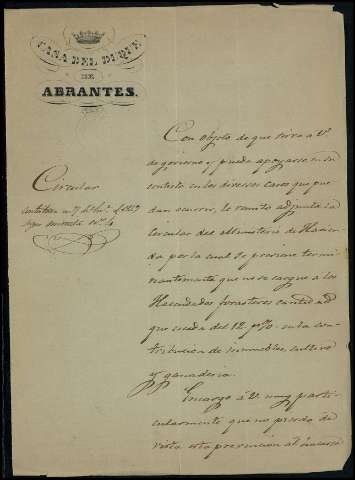 CASA DEL DUQUE
DE
ABRANTES.
Circular
segun minuta nº 4
Con objeto de que sirva a V.
de gobierno y pueda apoyarse en su
contesto en los diversos casos que pue
dan ocurrir, le remito adjunta la
Circular del Ministerio de Hacien
da por la cual se previene termi
nantemente que no se cargue a los
Hacendados forasteros cantidad
que esceda del 12 p% en la con
tribucion de inmuebles, cultivo
y ganaderia.
Encargo á V. muy parti
cularmente que no pierda de
vista esta prevencion al